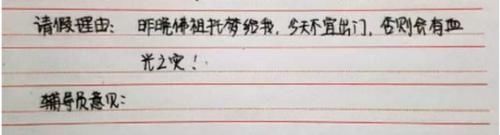 请假理由：昨晚佛祖托梦给我，今天不宜出门，否则会有血
光之灾！
辅导员意见：